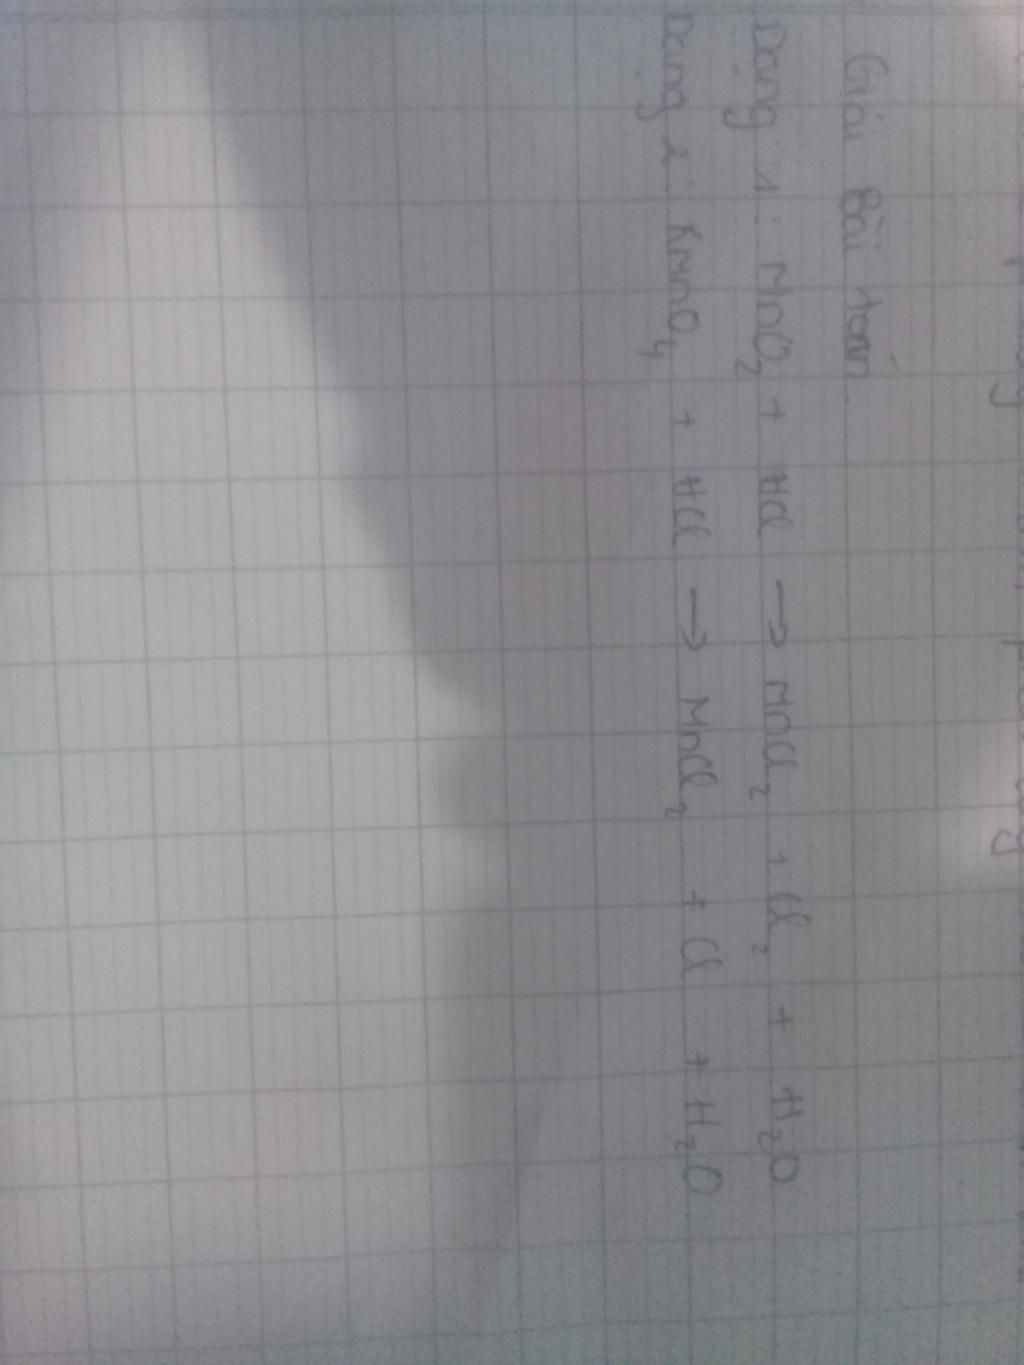 Giải Bài toán.
Dạng 1: MnO₂ + HCl → MnCl₂ + Cl₂ + H₂O
Dạng 2: KMnO₄ + HCl → MnCl₂ + Cl + H₂O